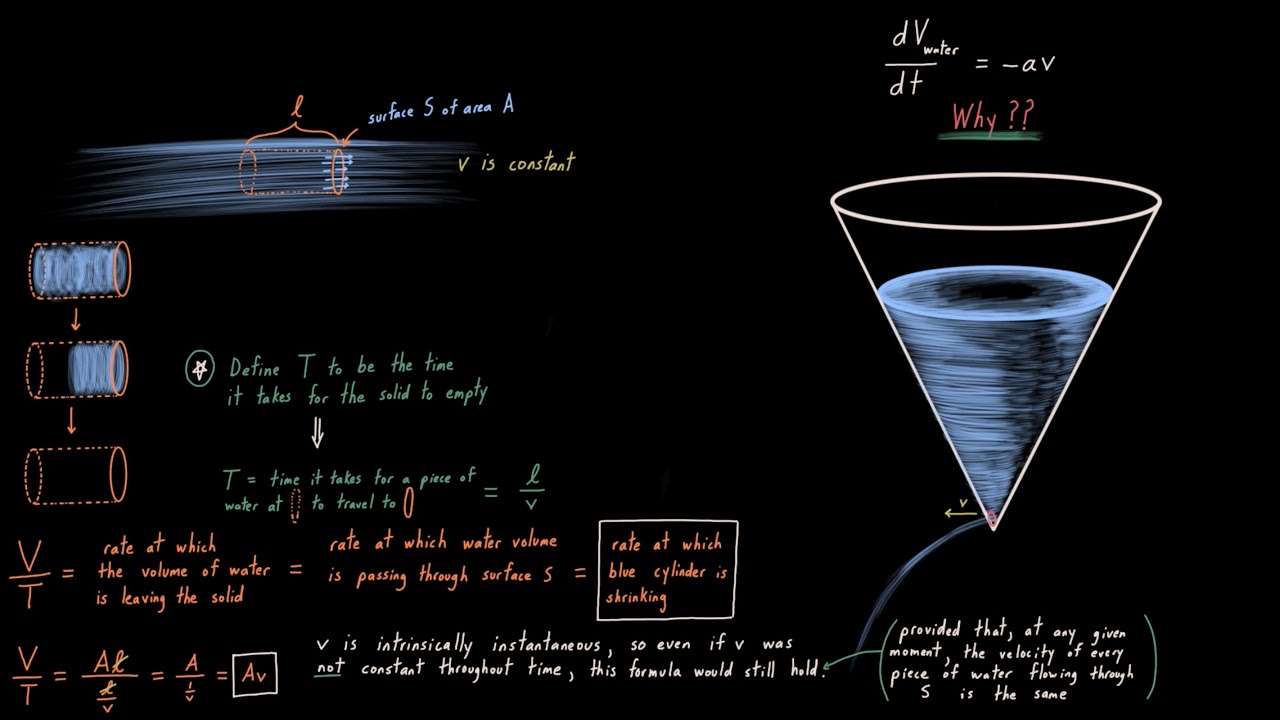 dV_water/dt = -av
Why ??
l
surface S of area A
v is constant
☆ Define T to be the time
it takes for the solid to empty
⇓
T = time it takes for a piece of
water at to travel to = l/v
v
V/T = rate at which the volume of water is leaving the solid = rate at which water volume is passing through surface S = rate at which blue cylinder is shrinking
V/T = Al/(l/v) = A/(1/v) = Av
v is intrinsically instantaneous, so even if v was
not constant throughout time, this formula would still hold.
(provided that, at any given
moment, the velocity of every
piece of water flowing through
S is the same)